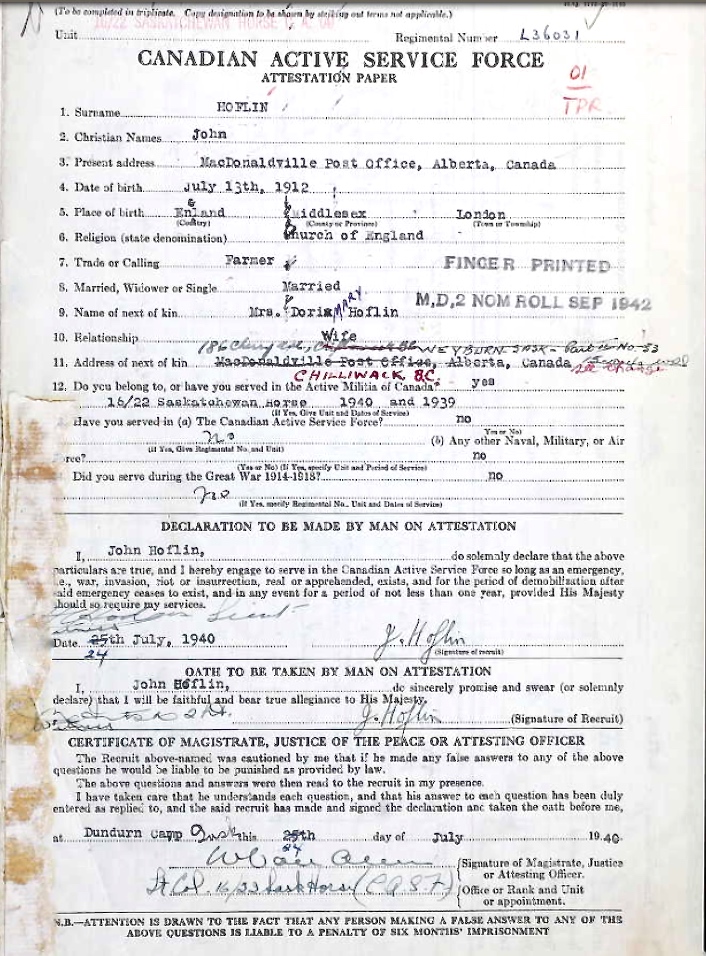 (To be completed in triplicate. Copy designation to be shown by striking out terms not applicable.)
16/22 SASKATCHEWAN HORSE
Unit Regimental Number L36031
CANADIAN ACTIVE SERVICE FORCE
ATTESTATION PAPER
01
TPR
1. Surname HOFLIN
2. Christian Names John
3. Present address MacDonaldville Post Office, Alberta, Canada
4. Date of birth July 13th, 1912
5. Place of birth Enland G Middlesex London
(Country) (County or Province) (Town or Township)
6. Religion (state denomination) Church of England
7. Trade or Calling Farmer
FINGER PRINTED
8. Married, Widower or Single Married
M.D,2 NOM ROLL SEP 1942
9. Name of next of kin Mrs. Doris MARY Hoflin
10. Relationship Wife
186 WEYBURN SASK - Part II No. 53
11. Address of next of kin MacDonaldville Post Office, Alberta, Canada see
CHILLIWACK B.C.
12. Do you belong to, or have you served in the Active Militia of Canada? yes
16/22 Saskatchewan Horse 1940 and 1939
(If Yes, Give Unit and Dates of Service)
Have you served in (a) The Canadian Active Service Force? no
(Yes or No)
no (b) Any other Naval, Military, or Air
(If Yes, Give Regimental No. and Unit)
orce? no
(Yes or No) (If Yes, specify Unit and Period of Service)
Did you serve during the Great War 1914-1918? no
no
(If Yes, specify Regimental No., Unit and Dates of Service)
DECLARATION TO BE MADE BY MAN ON ATTESTATION
I, John Hoflin, do solemnly declare that the above
particulars are true, and I hereby engage to serve in the Canadian Active Service Force so long as an emergency,
i.e., war, invasion, riot or insurrection, real or apprehended, exists, and for the period of demobilization after
said emergency ceases to exist, and in any event for a period of not less than one year, provided His Majesty
should so require my services.
Lieut
Witness
Date 25th July, 1940 J. Hoflin
24 (Signature of recruit)
OATH TO BE TAKEN BY MAN ON ATTESTATION
I, John Hoflin, do sincerely promise and swear (or solemnly
declare) that I will be faithful and bear true allegiance to His Majesty.
Witness J. Hoflin (Signature of Recruit)
CERTIFICATE OF MAGISTRATE, JUSTICE OF THE PEACE OR ATTESTING OFFICER
The Recruit above-named was cautioned by me that if he made any false answers to any of the above
questions he would be liable to be punished as provided by law.
The above questions and answers were then read to the recruit in my presence.
I have taken care that he understands each question, and that his answer to each question has been duly
entered as replied to, and the said recruit has made and signed the declaration and taken the oath before me,
at Dundurn Camp Sask this 25th day of July 1940
24
(Signature of Magistrate, Justice
or Attesting Officer.
Lt Col 16/22 Sask Horse (CASF) (Office or Rank and Unit
or appointment.
N.B.—ATTENTION IS DRAWN TO THE FACT THAT ANY PERSON MAKING A FALSE ANSWER TO ANY OF THE
ABOVE QUESTIONS IS LIABLE TO A PENALTY OF SIX MONTHS' IMPRISONMENT